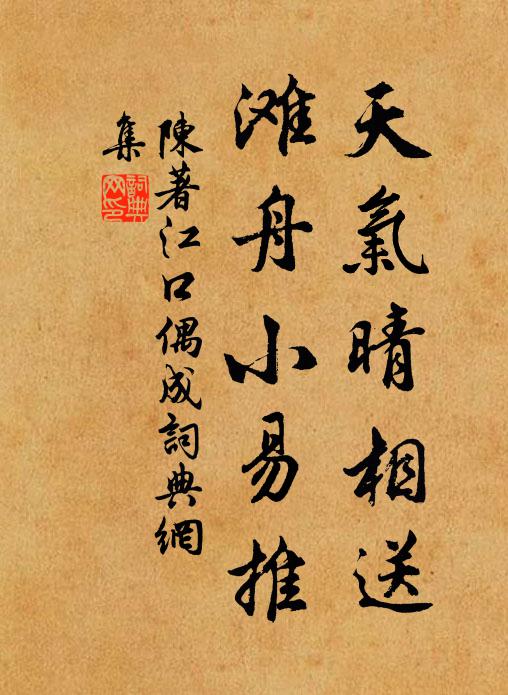 天氣晴相送
滩舟小易推
陳著江口偶成詞典網
集
詞典
网印